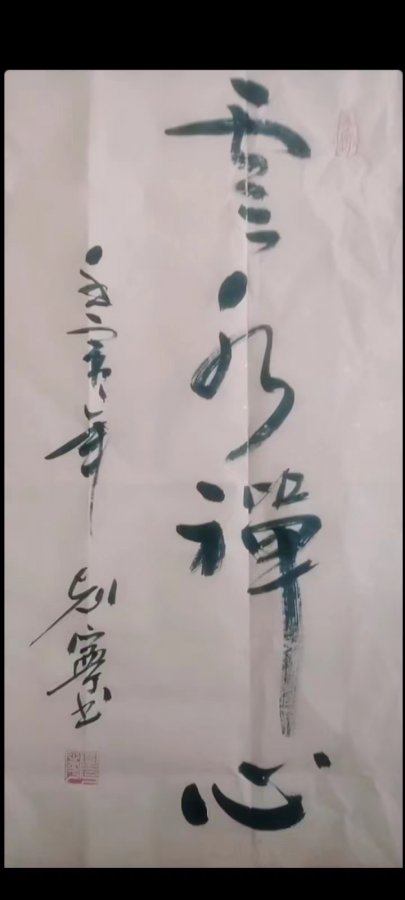 雲水禪心
壬寅年 劉寧書